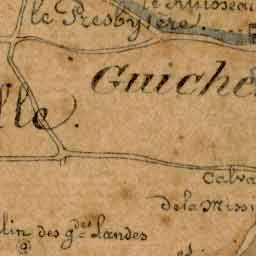 le Ruisseau
le Presbytère.
Guiche
lle.
Calva
de la Missi
lin des gdes landes